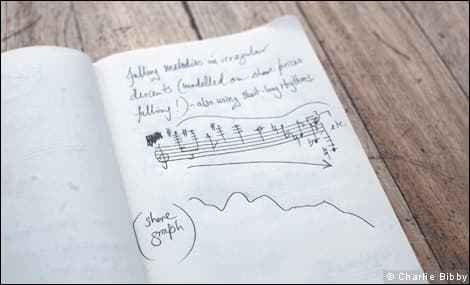 falling melodies in irregular
descents (modelled on share prices
falling!) - also using short-long rhythms
etc.
(share
graph)
© Charlie Bibby